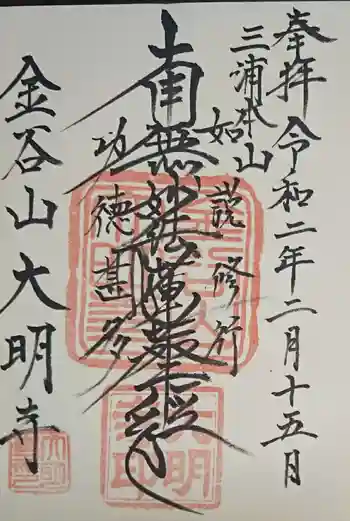 奉拝 令和二年二月十五月
三浦本山
如説修行
南無妙法蓮華経
功徳甚多
金谷山大明寺